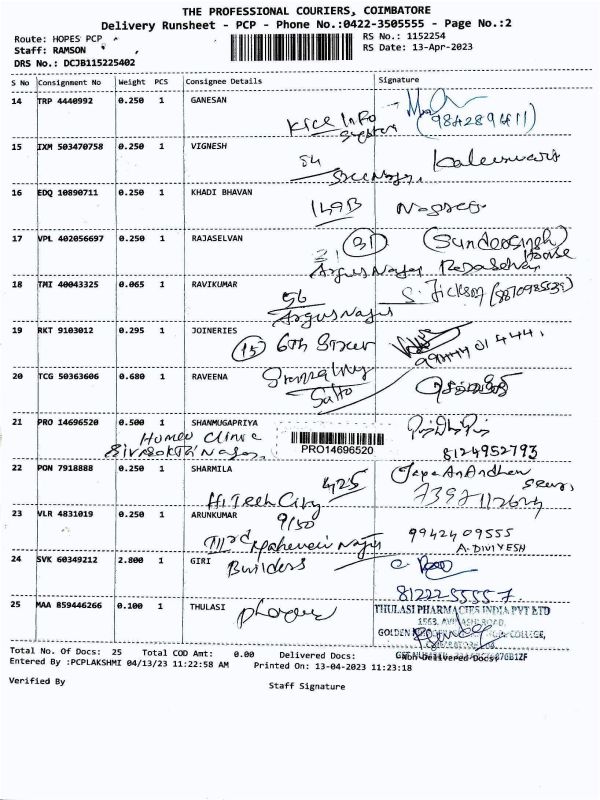 THE PROFESSIONAL COURIERS, COIMBATORE
Delivery Runsheet - PCP - Phone No.:0422-3505555 - Page No.:2
Route: HOPES PCP
RS No.: 1152254
Staff: RAMSON
RS Date: 13-Apr-2023
DRS No.: DCJB115225402
S No Consignment No Weight PCS Consignee Details Signature
14 TRP 4440992 0.250 1 GANESAN
Kice Info
System
(9842894411)
15 IXM 503470758 0.250 1 VIGNESH
54
Sree Nagar,
Kaleeswari
16 EDQ 10890711 0.250 1 KHADI BHAVAN
149B
17 VPL 402056697 0.250 1 RAJASELVAN
31 (Sundarsingh)
House
Argus Nagar
18 TMI 40043325 0.065 1 RAVIKUMAR
56
Argus Nagar
S. Jickson (8870985539)
19 RKT 9103012 0.295 1 JOINERIES
15 6th Street
9944401444.
20 TCG 50363606 0.680 1 RAVEENA
21 PRO 14696520 0.500 1 SHANMUGAPRIYA
Homeo Clinic
Sivasakthi Nagar,
PRO14696520
8124952793
22 PON 7918888 0.250 1 SHARMILA
425
Hi Tech City
23 VLR 4831019 0.250 1 ARUNKUMAR
9/50
IIIrd Mahaveer Nagar
9942409555
A. DIVIYESH
24 SVK 60349212 2.800 1 GIRI
Builders
81222 55557
25 MAA 859446266 0.100 1 THULASI
THULASI PHARMACIES INDIA PVT LTD
1563, AVINASHI ROAD,
Total No. Of Docs: 25 Total COD Amt: 0.00 Delivered Docs: Non-Delivered Docs:
Entered By :PCPLAKSHMI 04/13/23 11:22:58 AM Printed On: 13-04-2023 11:23:18
Verified By
Staff Signature